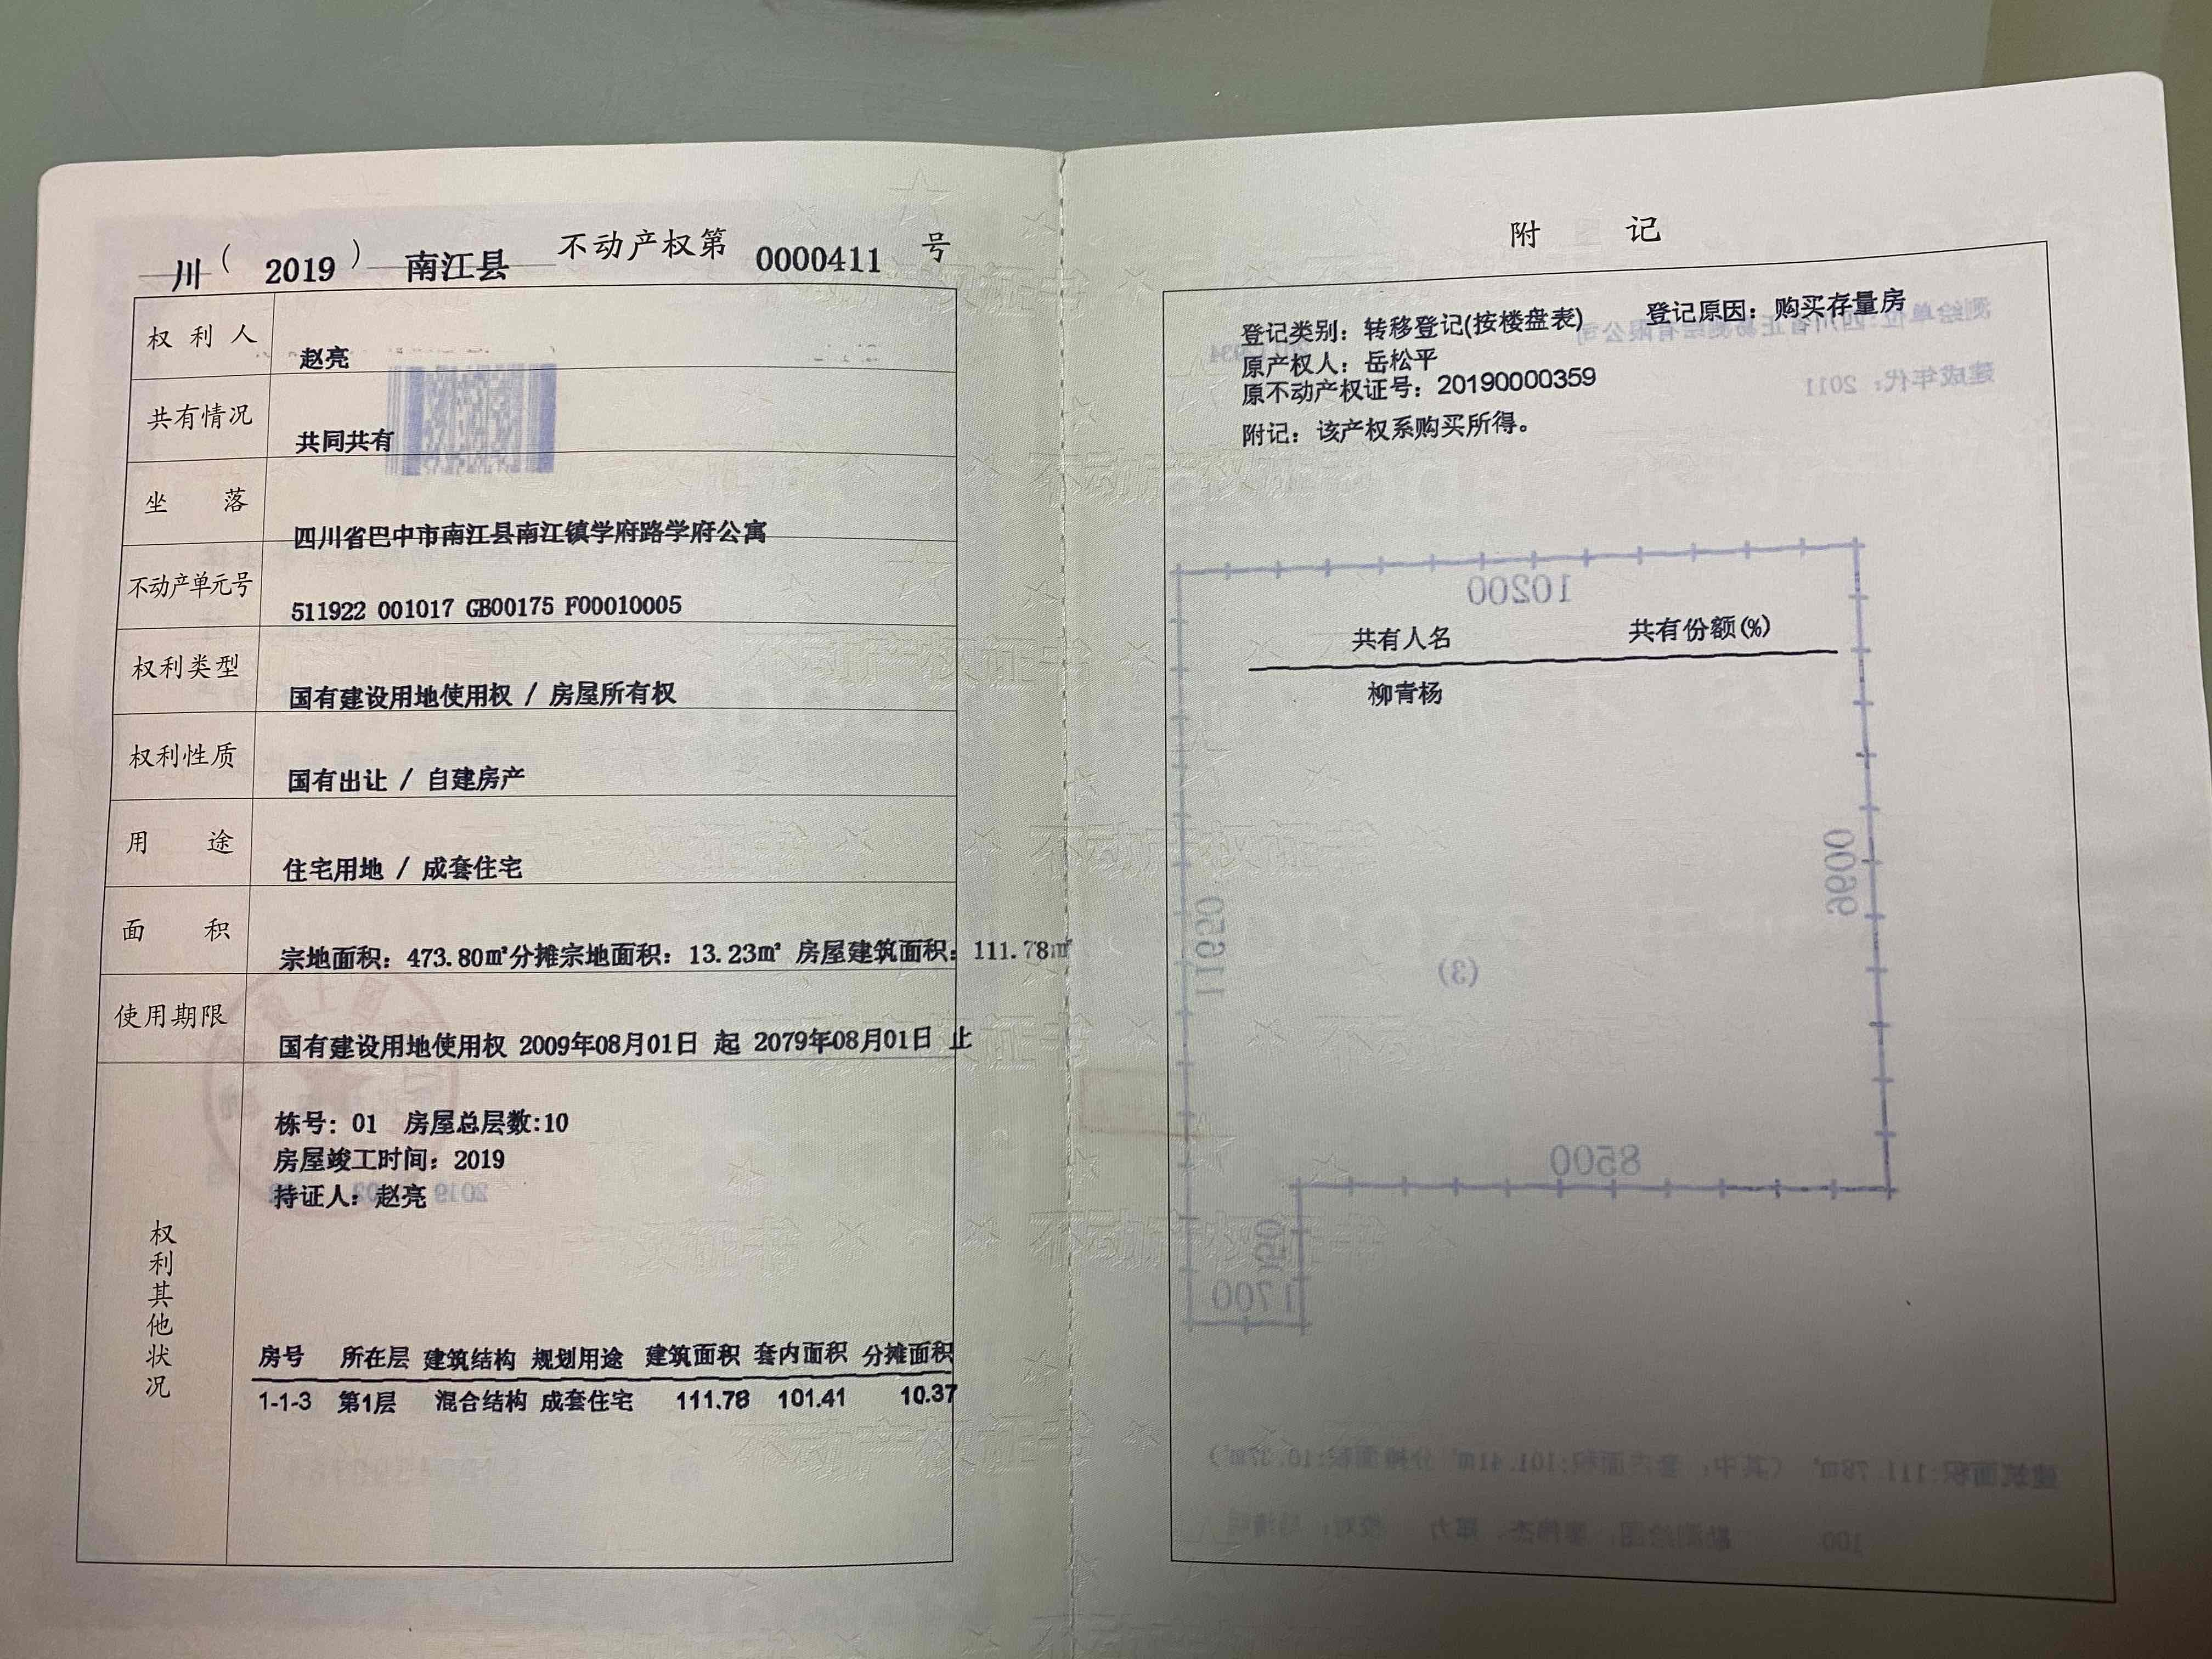 川（ 2019 ） 南江县 不动产权第 0000411 号
权利人 赵亮
共有情况 共同共有
坐落 四川省巴中市南江县南江镇学府路学府公寓
不动产单元号 511922 001017 GB00175 F00010005
权利类型 国有建设用地使用权 / 房屋所有权
权利性质 国有出让 / 自建房产
用途 住宅用地 / 成套住宅
面积 宗地面积：473.80㎡分摊宗地面积：13.23㎡ 房屋建筑面积：111.78㎡
使用期限 国有建设用地使用权 2009年08月01日 起 2079年08月01日 止
权利其他状况
栋号：01 房屋总层数:10
房屋竣工时间：2019
持证人：赵亮
房号 所在层 建筑结构 规划用途 建筑面积 套内面积 分摊面积
1-1-3 第1层 混合结构 成套住宅 111.78 101.41 10.37
附 记
登记类别：转移登记(按楼盘表) 登记原因：购买存量房
原产权人：岳松平
原不动产权证号：20190000359
附记：该产权系购买所得。
共有人名 共有份额(%)
柳青杨
建成年代：2011
10200
9600
11650
(3)
8500
1700
建筑面积:111.78㎡（其中：套内面积:101.41㎡ 分摊面积:10.37㎡）